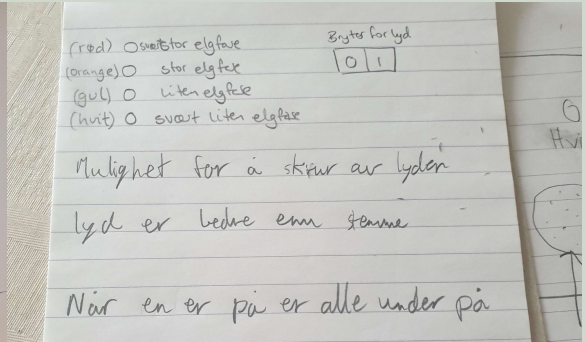 (rød) O svært stor elgfare
Bryter for lyd
0 1
(orange) O stor elgfare
(gul) O liten elgfare
(hvit) O svært liten elgfare
Mulighet for å skrur av lyden
lyd er bedre enn stemme
Når en er på er alle under på